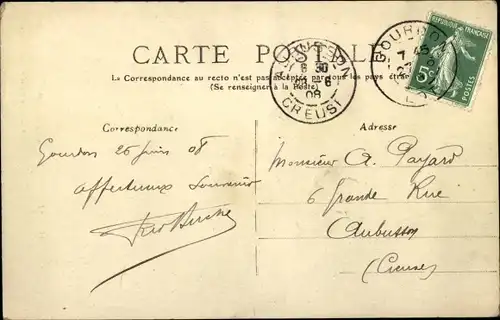 CARTE POSTALE
La Correspondance au recto n'est pas acceptée par tous les pays étrangers
(Se renseigner à la Poste)
REPUBLIQUE FRANÇAISE
5c
POSTES
GOURDON
LOT
AUBUSSON
8 30
-6
08
CREUSE
Correspondance
Adresse
Gourdon 26 juin 08
affectueux souvenir
Monsieur A. Payard
6 Grande Rue
Aubusson
(Creuse)